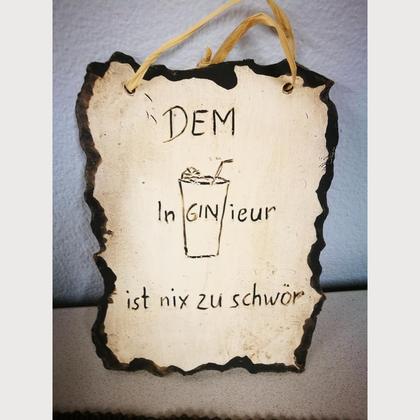 DEM
InGINieur
ist nix zu schwör